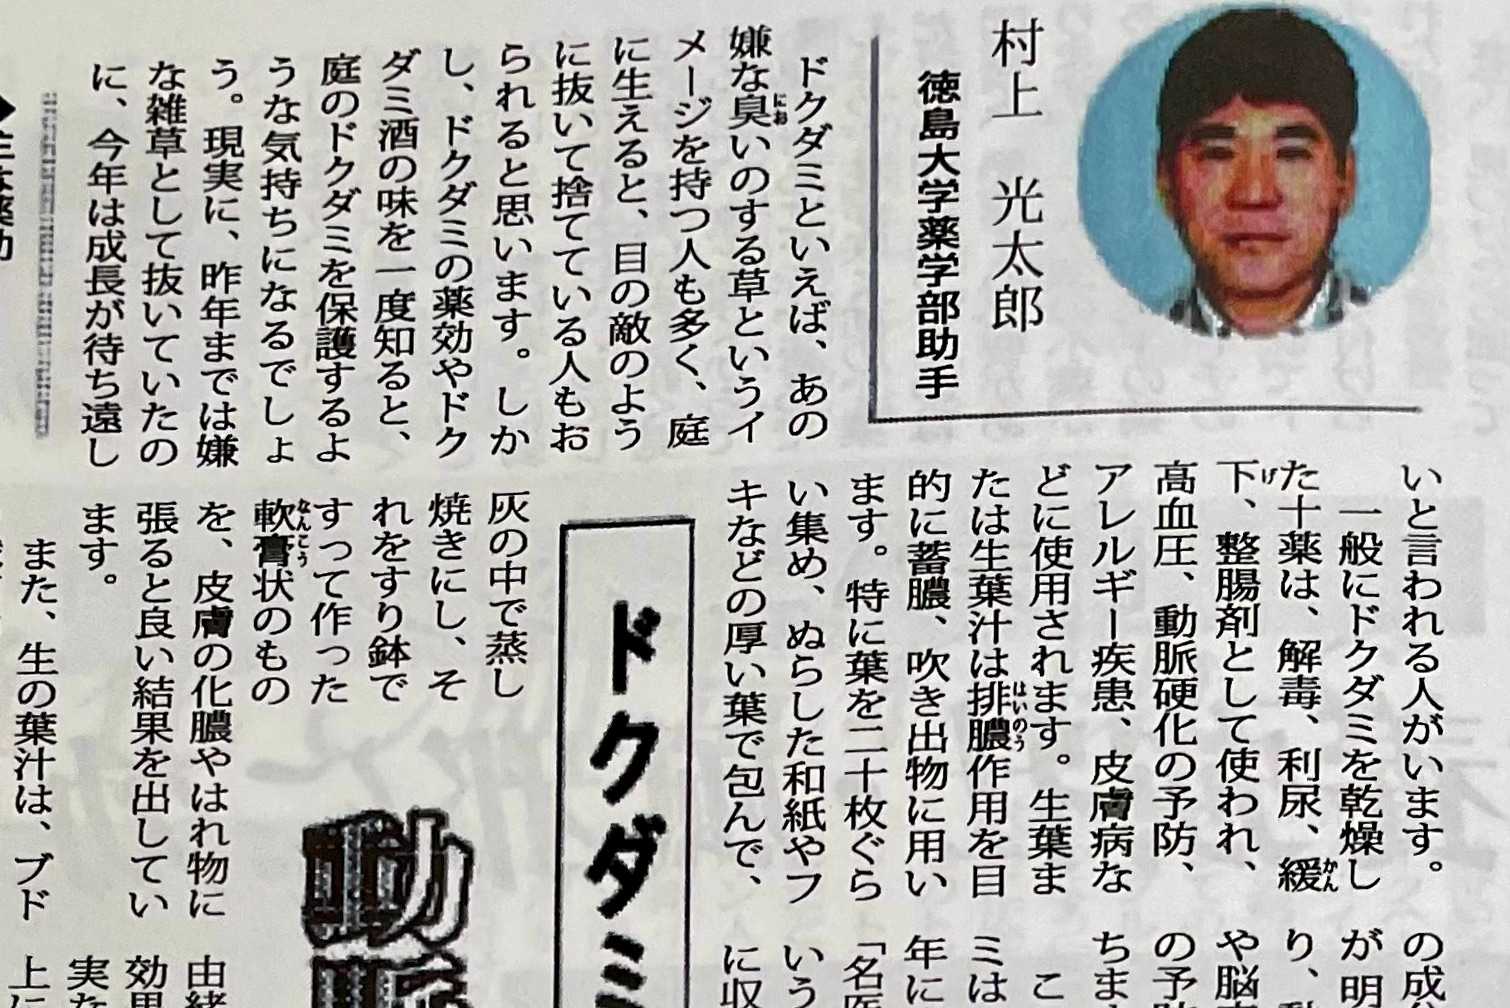 村上 光太郎
徳島大学薬学部助手
ドクダミといえば、あの
嫌な臭いのする草というイ
メージを持つ人も多く、庭
に生えると、目の敵のよう
に抜いて捨てている人もお
られると思います。しか
し、ドクダミの薬効やドク
ダミ酒の味を一度知ると、
庭のドクダミを保護するよ
うな気持ちになるでしょ
う。現実に、昨年までは嫌
な雑草として抜いていたの
に、今年は成長が待ち遠し
いと言われる人がいます。
一般にドクダミを乾燥し
た十薬は、解毒、利尿、緩
下、整腸剤として使われ、
高血圧、動脈硬化の予防、
アレルギー疾患、皮膚病な
どに使用されます。生葉ま
たは生葉汁は排膿作用を目
的に蓄膿、吹き出物に用い
ます。特に葉を二十枚ぐら
い集め、ぬらした和紙やフ
キなどの厚い葉で包んで、
ドクダミ
動脈
灰の中で蒸し
焼きにし、そ
れをすり鉢で
すって作った
軟膏状のもの
を、皮膚の化膿やはれ物に
張ると良い結果を出してい
ます。
また、生の葉汁は、ブド
の成
が明
り、
や脳
の予防
ちま
こ
ミは
年に
「名医
いう
に収
由緒
効果
実な
上に